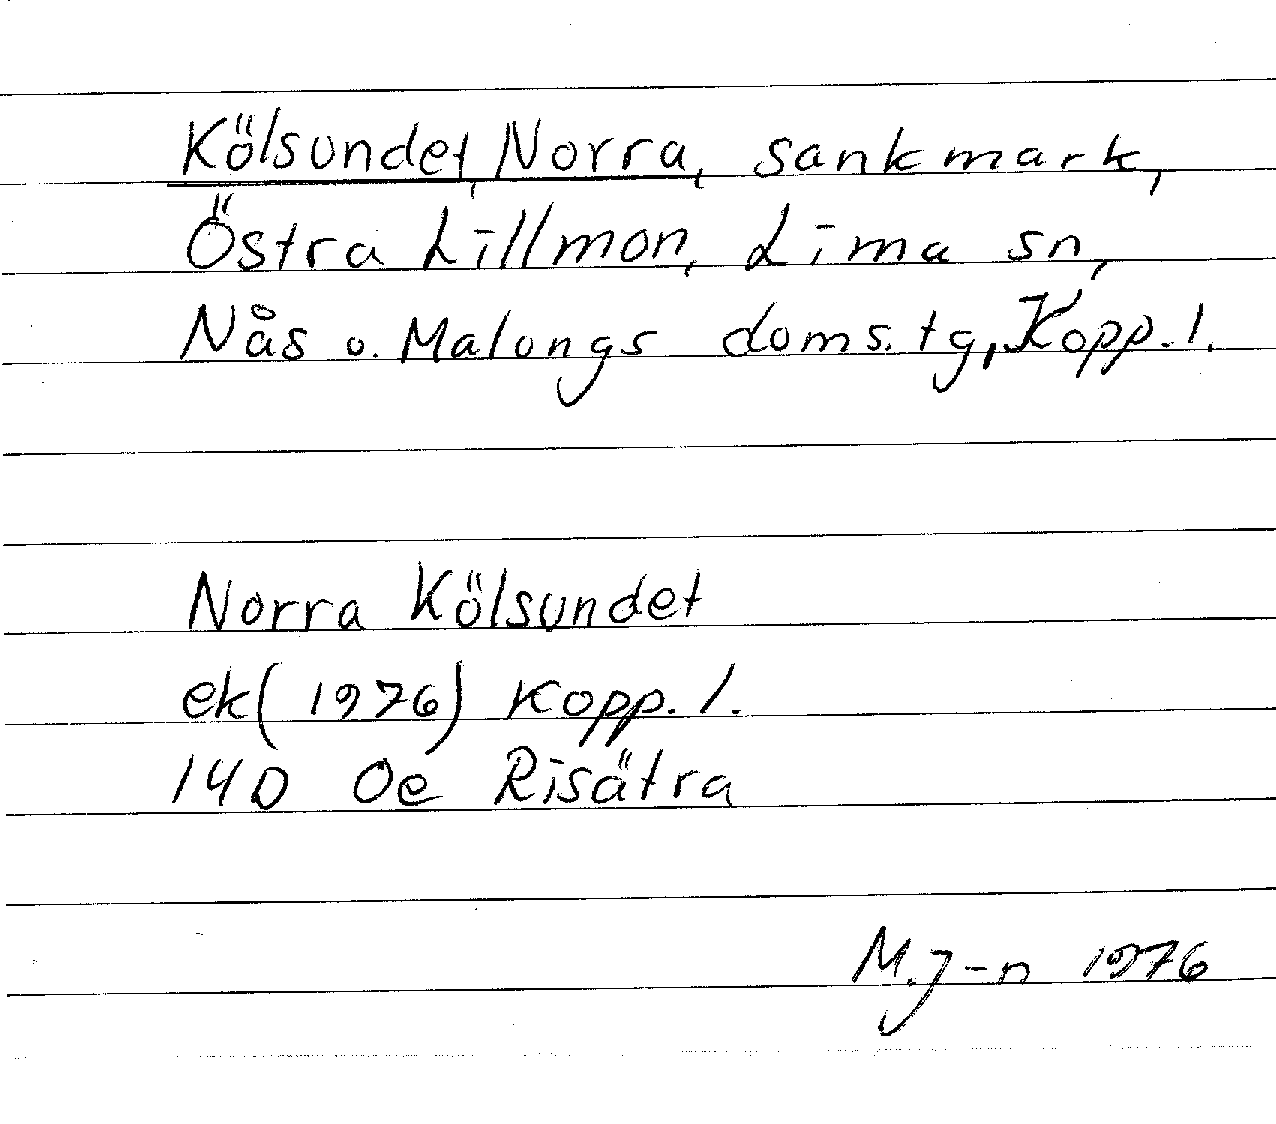 Kölsundet, Norra, sankmark,
Östra Lillmon, Lima sn,
Nås o. Malungs doms. tg, Kopp. l.
Norra Kölsundet
ek (1976) Kopp. l.
14D Oe Risätra
M. J-n 1976